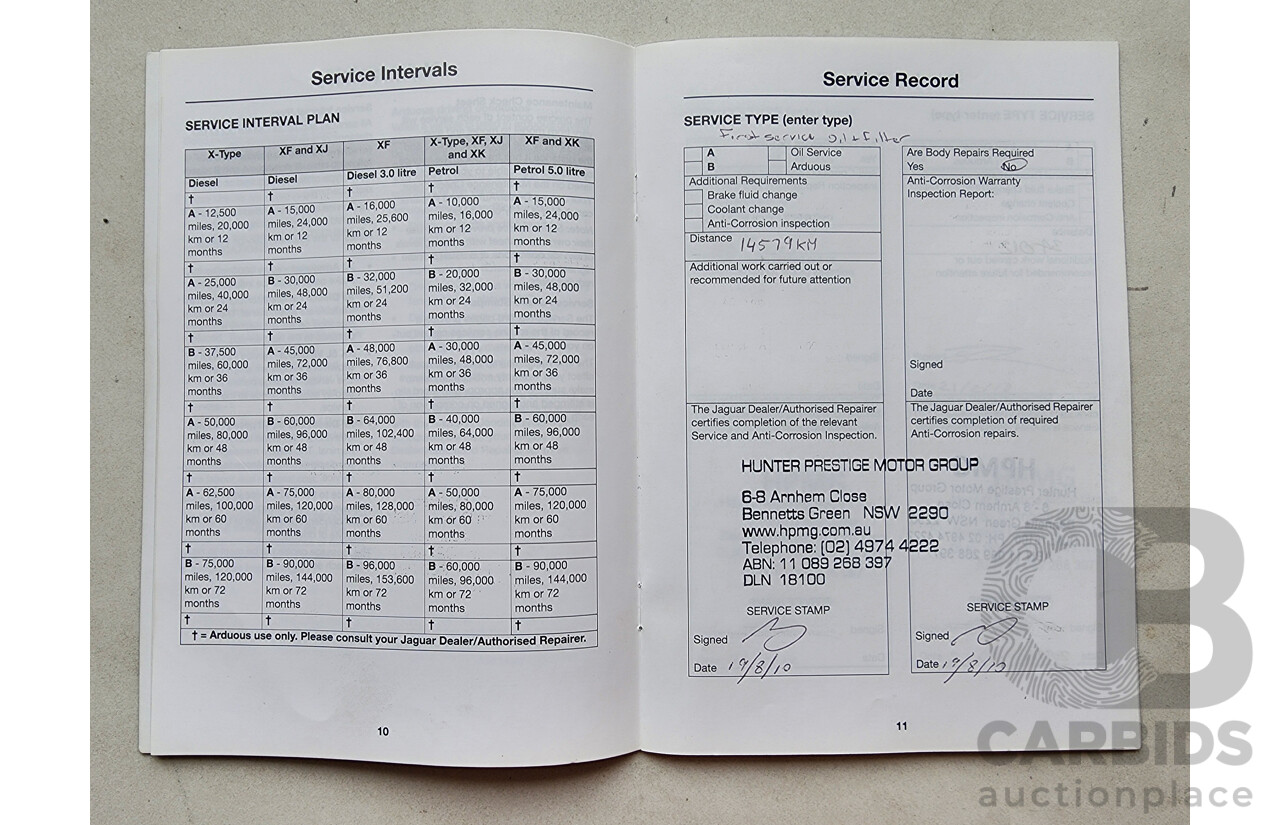 Service Intervals
SERVICE INTERVAL PLAN
X-Type
XF and XJ
XF
X-Type, XF, XJ
and XK
XF and XK
Diesel
Diesel
Diesel 3.0 litre
Petrol
Petrol 5.0 litre
† † † † †
A - 12,500
miles, 20,000
km or 12
months
A - 15,000
miles, 24,000
km or 12
months
A - 16,000
miles, 25,600
km or 12
months
A - 10,000
miles, 16,000
km or 12
months
A - 15,000
miles, 24,000
km or 12
months
† † † † †
A - 25,000
miles, 40,000
km or 24
months
B - 30,000
miles, 48,000
km or 24
months
B - 32,000
miles, 51,200
km or 24
months
B - 20,000
miles, 32,000
km or 24
months
B - 30,000
miles, 48,000
km or 24
months
† † † † †
B - 37,500
miles, 60,000
km or 36
months
A - 45,000
miles, 72,000
km or 36
months
A - 48,000
miles, 76,800
km or 36
months
A - 30,000
miles, 48,000
km or 36
months
A - 45,000
miles, 72,000
km or 36
months
† † † † †
A - 50,000
miles, 80,000
km or 48
months
B - 60,000
miles, 96,000
km or 48
months
B - 64,000
miles, 102,400
km or 48
months
B - 40,000
miles, 64,000
km or 48
months
B - 60,000
miles, 96,000
km or 48
months
† † † † †
A - 62,500
miles, 100,000
km or 60
months
A - 75,000
miles, 120,000
km or 60
months
A - 80,000
miles, 128,000
km or 60
months
A - 50,000
miles, 80,000
km or 60
months
A - 75,000
miles, 120,000
km or 60
months
† † † † †
B - 75,000
miles, 120,000
km or 72
months
B - 90,000
miles, 144,000
km or 72
months
B - 96,000
miles, 153,600
km or 72
months
B - 60,000
miles, 96,000
km or 72
months
B - 90,000
miles, 144,000
km or 72
months
† † † † †
† = Arduous use only. Please consult your Jaguar Dealer/Authorised Repairer.
10
Service Record
SERVICE TYPE (enter type)
First service oil + filter
A Oil Service
B Arduous
Additional Requirements
Brake fluid change
Coolant change
Anti-Corrosion inspection
Distance 14579KM
Additional work carried out or
recommended for future attention
The Jaguar Dealer/Authorised Repairer
certifies completion of the relevant
Service and Anti-Corrosion Inspection.
Are Body Repairs Required
Yes No
Anti-Corrosion Warranty
Inspection Report:
Signed
Date
The Jaguar Dealer/Authorised Repairer
certifies completion of required
Anti-Corrosion repairs.
HUNTER PRESTIGE MOTOR GROUP
6-8 Arnhem Close
Bennetts Green NSW 2290
www.hpmg.com.au
Telephone: (02) 4974 4222
ABN: 11 089 268 397
DLN 18100
SERVICE STAMP
Signed
Date 19/8/10
SERVICE STAMP
Signed
Date 19/8/10
11
CARBIDS
auctionplace